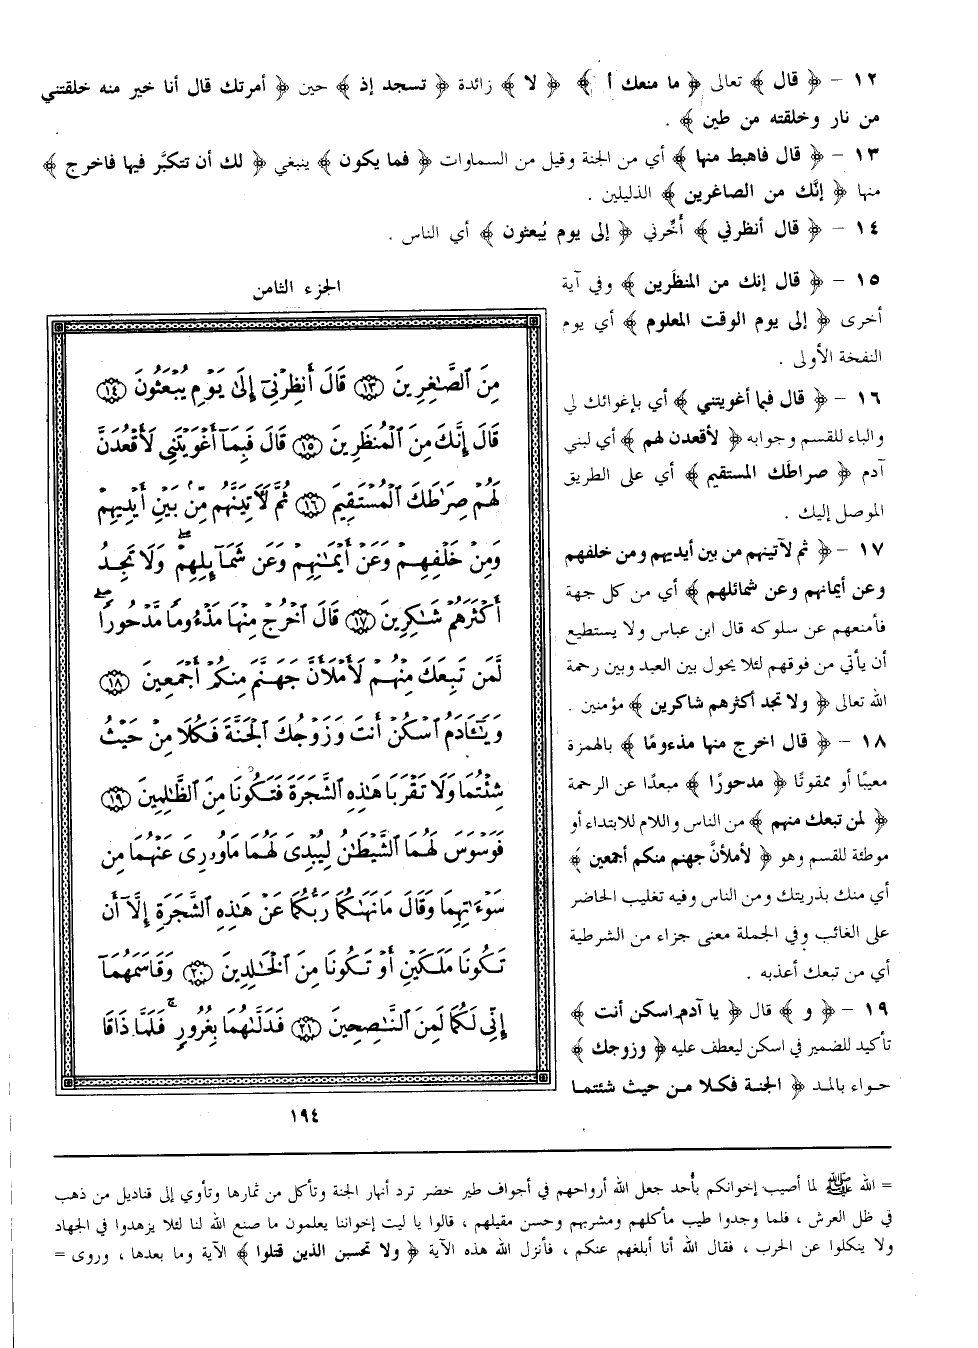 ١٢ - ﴿ قال ﴾ تعالى ﴿ ما منعك أ ﴾ ﴿ لا ﴾ زائدة ﴿ تسجد إذ ﴾ حين ﴿ أمرتك قال أنا خير منه خلقتني
من نار وخلقته من طين ﴾ .
١٣ - ﴿ قال فاهبط منها ﴾ أي من الجنة وقيل من السماوات ﴿ فما يكون ﴾ ينبغي ﴿ لك أن تتكبَّر فيها فاخرج ﴾
منها ﴿ إنَّك من الصاغرين ﴾ الذليلين .
١٤ - ﴿ قال أنظرني ﴾ أخّرني ﴿ إلى يوم يُبعثون ﴾ أي الناس .
١٥ - ﴿ قال إنك من المنظَرين ﴾ وفي آية
أخرى ﴿ إلى يوم الوقت المعلوم ﴾ أي يوم
النفخة الأولى .
١٦ - ﴿ قال فبما أغويتني ﴾ أي بإغوائك لي
والباء للقسم وجوابه ﴿ لأقعدن لهم ﴾ أي لبني
آدم ﴿ صراطَك المستقيم ﴾ أي على الطريق
الموصل إليك .
١٧ - ﴿ ثم لآتينهم من بين أيديهم ومن خلفهم
وعن أيمانهم وعن شمائلهم ﴾ أي من كل جهة
فأمنعهم عن سلوكه قال ابن عباس ولا يستطيع
أن يأتي من فوقهم لئلا يحول بين العبد وبين رحمة
الله تعالى ﴿ ولا تجد أكثرهم شاكرين ﴾ مؤمنين .
١٨ - ﴿ قال اخرج منها مذءومًا ﴾ بالهمزة
معيبًا أو ممقوتًا ﴿ مدحورًا ﴾ مبعدًا عن الرحمة
﴿ لمن تبعك منهم ﴾ من الناس واللام للابتداء أو
موطئة للقسم وهو ﴿ لأملأنَّ جهنم منكم أجمعين ﴾
أي منك بذريتك ومن الناس وفيه تغليب الحاضر
على الغائب وفي الجملة معنى جزاء من الشرطية
أي من تبعك أعذبه .
١٩ - ﴿ و ﴾ قال ﴿ يا آدم اسكن أنت ﴾
تأكيد للضمير في اسكن ليعطف عليه ﴿ وزوجك ﴾
حواء بالمد ﴿ الجنة فكلا من حيث شئتما
الجزء الثامن
مِنَ ٱلصَّٰغِرِينَ ١٣ قَالَ أَنظِرْنِىٓ إِلَىٰ يَوْمِ يُبْعَثُونَ ١٤
قَالَ إِنَّكَ مِنَ ٱلْمُنظَرِينَ ١٥ قَالَ فَبِمَآ أَغْوَيْتَنِى لَأَقْعُدَنَّ
لَهُمْ صِرَٰطَكَ ٱلْمُسْتَقِيمَ ١٦ ثُمَّ لَـَٔاتِيَنَّهُم مِّنۢ بَيْنِ أَيْدِيهِمْ
وَمِنْ خَلْفِهِمْ وَعَنْ أَيْمَٰنِهِمْ وَعَن شَمَآئِلِهِمْ ۖ وَلَا تَجِدُ
أَكْثَرَهُمْ شَٰكِرِينَ ١٧ قَالَ ٱخْرُجْ مِنْهَا مَذْءُومًا مَّدْحُورًا ۖ
لَّمَن تَبِعَكَ مِنْهُمْ لَأَمْلَأَنَّ جَهَنَّمَ مِنكُمْ أَجْمَعِينَ ١٨
وَيَٰٓـَٔادَمُ ٱسْكُنْ أَنتَ وَزَوْجُكَ ٱلْجَنَّةَ فَكُلَا مِنْ حَيْثُ
شِئْتُمَا وَلَا تَقْرَبَا هَٰذِهِ ٱلشَّجَرَةَ فَتَكُونَا مِنَ ٱلظَّٰلِمِينَ ١٩
فَوَسْوَسَ لَهُمَا ٱلشَّيْطَٰنُ لِيُبْدِىَ لَهُمَا مَا وُۥرِىَ عَنْهُمَا مِن
سَوْءَٰتِهِمَا وَقَالَ مَا نَهَىٰكُمَا رَبُّكُمَا عَنْ هَٰذِهِ ٱلشَّجَرَةِ إِلَّآ أَن
تَكُونَا مَلَكَيْنِ أَوْ تَكُونَا مِنَ ٱلْخَٰلِدِينَ ٢٠ وَقَاسَمَهُمَآ
إِنِّى لَكُمَا لَمِنَ ٱلنَّٰصِحِينَ ٢١ فَدَلَّىٰهُمَا بِغُرُورٍ ۚ فَلَمَّا ذَاقَا
١٩٤
= الله ﷺ لما أصيب إخوانكم بأحد جعل الله أرواحهم في أجواف طير خضر ترد أنهار الجنة وتأكل من ثمارها وتأوي إلى قناديل من ذهب
في ظل العرش ، فلما وجدوا طيب مأكلهم ومشربهم وحسن مقيلهم ، قالوا يا ليت إخواننا يعلمون ما صنع الله لنا لئلا يزهدوا في الجهاد
ولا ينكلوا عن الحرب ، فقال الله أنا أبلغهم عنكم ، فأنزل الله هذه الآية ﴿ ولا تحسبن الذين قتلوا ﴾ الآية وما بعدها ، وروى =